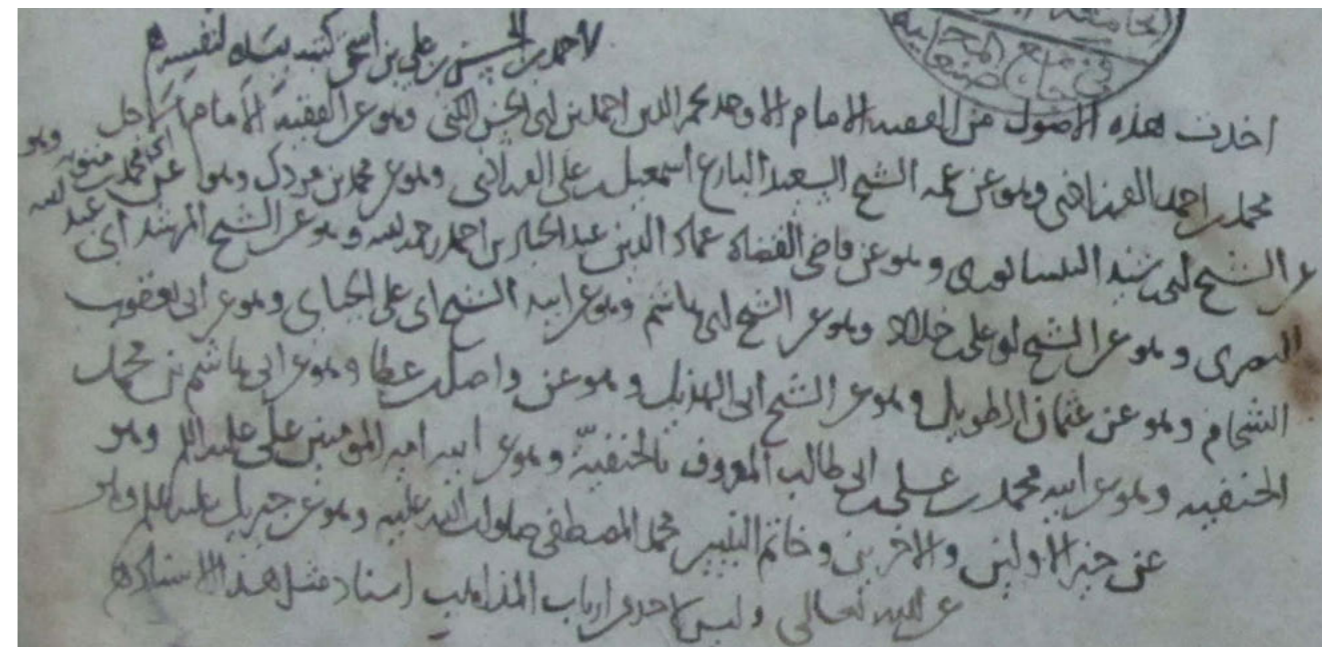 لاحمد بن الحسن بن علي بن اسحق كتبه بيده لنفسه
اخذت هذه الاصول من الفقيه الامام الاوحد مجد الدين احمد بن ابى الحسن الكنى وهو عن الفقيه الامام الاجل
محمد بن احمد الفرزاذى وهو عن عمه الشيخ السعيد البارع اسمعيل بن على الفرزاذى وهو عن محمد بن مزدك وهو عن ابى محمد بن متويه وهو
عن الشيخ ابى رشيد النيسابورى وهو عن قاضى القضاه عماد الدين عبد الجبار بن احمد رحمه الله وهو عن الشيخ المرشد ابى عبد الله
البصرى وهو عن الشيخ ابو على خلاد وهو عن الشيخ ابى هاشم وهو عن ابيه الشيخ ابى على الجباى وهو عن ابى يعقوب
الشحام وهو عن عثمان الطويل وهو عن الشيخ ابى الهذيل وهو عن واصل بن عطا وهو عن ابى هاشم بن محمد
الحنفيه وهو عن ابيه محمد بن على بن ابى طالب المعروف بالحنفيّة وهو عن ابيه امير المومنين على عليه السلم وهو
عن خير الاولين والاخرين وخاتم النبيين محمد المصطفى صلوات الله عليه وهو عن جبريل عليه السلم وهو
عن الله تعالى وليس لاحد من ارباب المذاهب اسناد مثل هذا الاسناد
الجامع
فى جامع صنعا